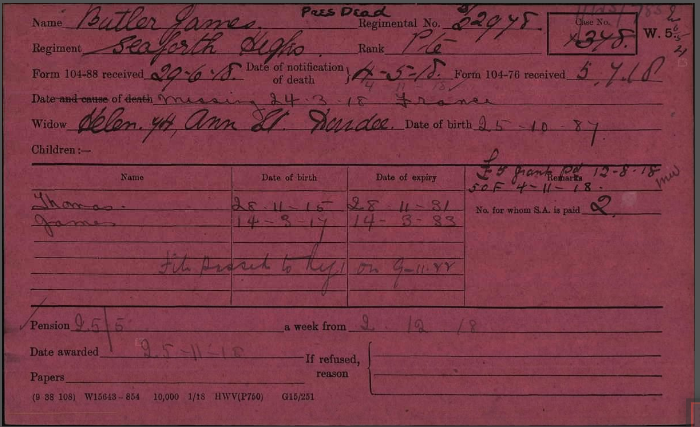 Pres Dead
Name Butler James. Regimental No. S/22978. Case No.
Regiment Seaforth Highs. Rank Pte 1378. W. 5.
Form 104-88 received 29-6-18. Date of notification of death } 4-5-18. Form 104-76 received 5.7.18
Date and cause of death missing 24.3.18 France
Widow Helen. 44, Ann St. Dundee. Date of birth 25-10-87.
Children:—
Name Date of birth Date of expiry Remarks
£5 grant Pd 12-8-18
SOF 4-11-18.
Thomas. 28-11-15 28-11-31
James 14-3-17 14-3-33
No. for whom S.A. is paid 2.
File passed to on 9-11-22
Pension 25/5 a week from 2 12 18
Date awarded 25-11-18 If refused, reason
Papers
(9 38 108) W15643-854 10,000 1/18 HWV(P750) G15/251